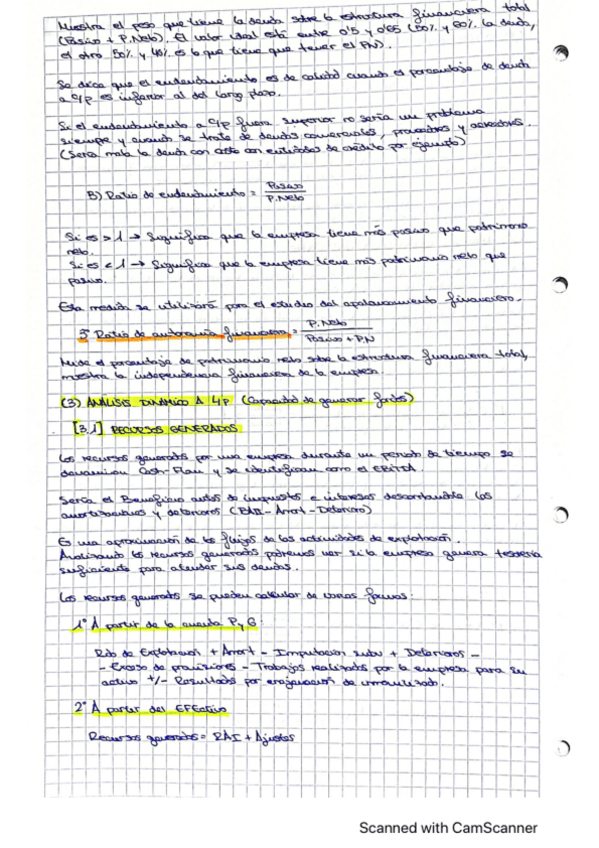 Muestra el peso que tiene la deuda sobre la estructura financiera total
(Pasivo + P.Neto). El valor ideal está entre 0'5 y 0'65 (50% y 60% la deuda,
el otro 50% y 40% es lo que tiene que tener el PN).
Se dice que el endeudamiento es de calidad cuando el porcentaje de deuda
a c/p es inferior al del largo plazo.
Si el endeudamiento a c/p fuera superior no sería un problema
siempre y cuando se trate de deudas comerciales, proveedores y acreedores.
(Sería mala la deuda con coste con entidades de crédito por ejemplo)
B) Ratio de endeudamiento = Pasivo / P.Neto
Si es > 1 → Significa que la empresa tiene más pasivo que patrimonio
neto.
Si es < 1 → Significa que la empresa tiene más patrimonio neto que
pasivo.
Esta medida se utilizará para el estudio del apalancamiento financiero.
3º Ratio de autonomía financiera = P.Neto / Pasivo + PN
Mide el porcentaje de patrimonio neto sobre la estructura financiera total,
muestra la independencia financiera de la empresa.
(3) ANÁLISIS DINÁMICO A L/P (Capacidad de generar fondos)
[3.1] RECURSOS GENERADOS
Los recursos generados por una empresa durante un período de tiempo se
denominan Cash-Flow y se identifican como el EBITDA.
Sería el Beneficio antes de impuestos e intereses descontándole las
amortizaciones y deterioros (BAII - Amort - Deterioro)
Es una aproximación de los flujos de las actividades de explotación.
Analizando los recursos generados podremos ver si la empresa genera tesorería
suficiente para atender sus deudas.
Los recursos generados se pueden calcular de varias formas:
1º A partir de la cuenta P y G
Rdo de Explotación + Amort - Imputación subv + Deterioros -
- Exceso de provisiones - Trabajos realizados por la empresa para su
activo +/- Resultados por enajenación de inmovilizado.
2º A partir del EFEctivo
Recursos generados = RAI + Ajustes
Scanned with CamScanner